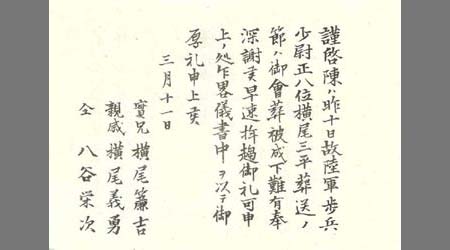 謹啓陳ハ昨十日故陸軍歩兵
少尉正八位横尾三平葬送ノ
節ハ御會葬被成下難有奉
深謝候早速拝趨御礼可申
上ノ処乍畧儀書中ヲ以テ御
厚礼申上候
三月十一日
實兄横尾簾吉
親戚横尾義勇
仝八谷栄次